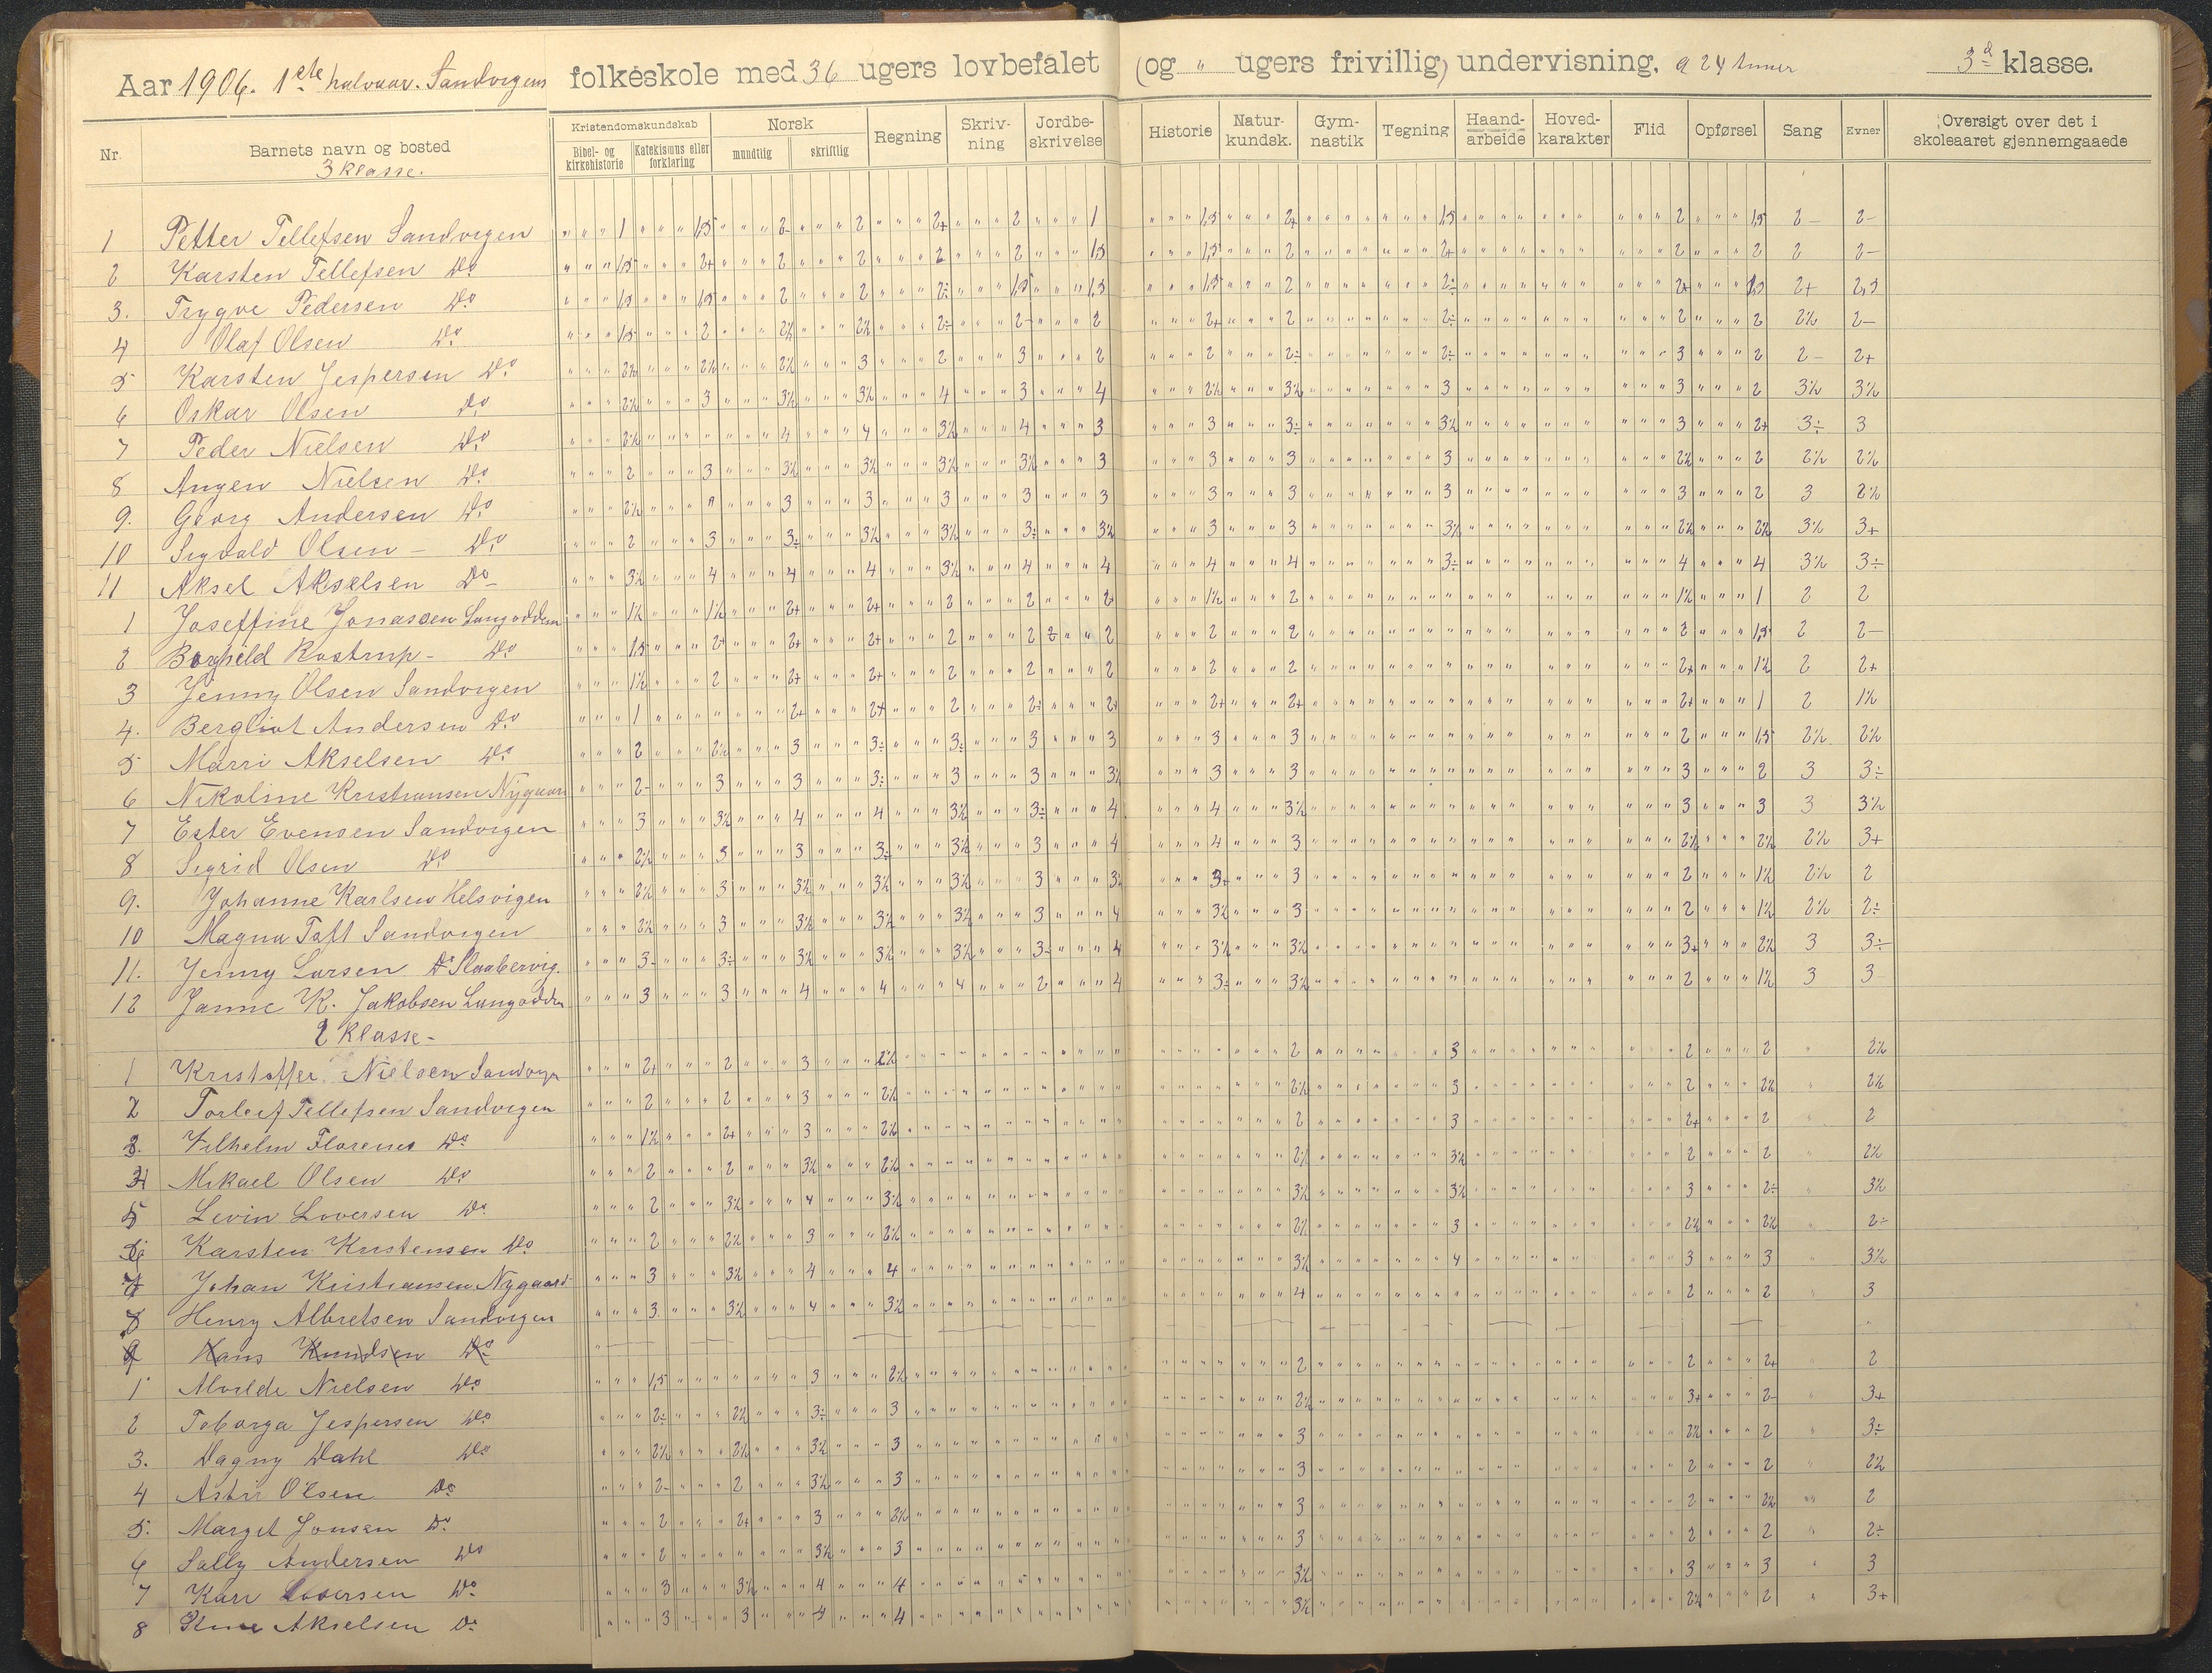 Aar 1906. 1ste halvaar. Sandvigens folkeskole med 36 ugers lovbefalet (og " ugers frivillig) undervisning, a 24 timer 3d klasse.
Nr. Barnets navn og bosted Kristendomskundskab Bibel- og kirkehistorie Katekismus eller forklaring Norsk mundtlig skriftlig Regning Skriv-ning Jordbe-skrivelse Historie Natur-kundsk. Gym-nastik Tegning Haand-arbeide Hoved-karakter Flid Opførsel Sang Evner Oversigt over det i skoleaaret gjennemgaaede
3 klasse.
1 Petter Tellefsen Sandvigen 1 1,5 2- 2 2+ 2 1 1,5 2+ 1,5 2 1,5 2- 2-
2 Karsten Tellefsen Do 1,5 2+ 2 2 2 2 1,5 1,5 2 2+ 2 2 2 2-
3. Trygve Pedersen Do 1,5 1,5 2 2 2÷ 1,5 1,5 1,5 2 2÷ 2+ 1,5 2+ 2,5
4 Olaf Olsen Do 1,5 2 2½ 2½ 2÷ 2- 2 2+ 2 2÷ 2 2 2½ 2-
5 Karsten Jespersen Do 2½ 2½ 2½ 3 2 3 2 2 2÷ 2÷ 3 2 2- 2+
6 Oskar Olsen Do 2½ 3 3½ 3½ 4 3 4 2½ 3½ 3 3 2 3½ 3½
7 Peder Nielsen Do 2½ " 4 4 3½ 4 3 3 3÷ 3½ 3 2+ 3÷ 3
8 Angen Nielsen Do 2 3 3½ 3½ 3½ 3½ 3 3 3 3 2½ 2 2½ 2½
9. Georg Andersen Do 2½ " 3 3 3 3 3 3 3 3 3 2 3 2½
10 Sigvald Olsen - Do 2 3 3÷ 3½ 3½ 3÷ 3½ 3 3 3½ 2½ 2½ 3½ 3+
11 Aksel Akselsen Do 3½ 4 4 4 3½ 4 4 4 4 3÷ 4 4 3½ 3÷
1 Joseffine Jonassen Langodden 1½ 1½ 2+ 2+ 2 2 2 1½ 2 1½ 1 2 2
2 Borghild Rostrup - Do 1,5 2+ 2+ 2+ 2 2 2 2 2 2 1,5 2 2-
3 Jenny Olsen Sandvigen 1½ 2 2+ 2+ 2 2 2 2 2 2+ 1½ 2 2+
4. Bergliot Andersen Do 1 " 2+ 2+ 2 2÷ 2 2+ 2+ 2+ 1 2 1½
5 Marri Akselsen Do 2 2½ 3 3÷ 3÷ 3 3 3 3 2 1,5 2½ 2½
6 Nikoline Kristiansen Nygaard 2- 3 3 3÷ 3 3 3½ 3 3 3 2 3 3÷
7 Ester Evensen Sandvigen 3 3½ 4 4 3½ 3÷ 4 4 3½ 3 3 3 3½
8 Sigrid Olsen Do 2½ 3 3 3÷ 3½ 3 4 4 3 2½ 2½ 2½ 3+
9. Johanne Karlsen Helsvigen 2½ 3 3½ 3½ 3½ 3 3½ 3+ 3 2 1½ 2½ 2
10 Magna Toft Sandvigen 2½ 3 3½ 3½ 3½ 3 4 3½ 3 2 1½ 2½ 2÷
11. Jenny Larsen Do Skaabervig. 3- 3÷ 3½ 3½ 3½ 3- 4 3½ 3½ 3+ 2½ 3 3÷
12 Janne K. Jakobsen Langodden 3 3 4 4 4 2 4 3÷ 3½ 2 1½ 3 3
2 klasse -
1 Kristoffer Nielsen Sandvigen 2+ 2 3 2½ 2 3 2 2 " 2½
2 Torleif Tellefsen Sandvigen 2 2 3 2½ 2½ 3 2 2½ " 2½
3. Vilhelm Florenes Do 1½ 2+ 3 2½ 2 3 2+ 2 " 2
4 Mikael Olsen Do 2 2 3½ 2½ 2½ 3½ 2 2 " 2½
5 Levin Loversen Do 2 3½ 4 3½ 3½ 3½ 3 2÷ " 3½
6 Karsten Kristensen Do 2 2½ 3 2½ 2½ 3 2½ 2½ " 2÷
7 Johan Kristiansen Nygaard 3 3½ 4 4 3½ 4 3 3 " 3½
8 Henry Albretsen Sandvigen 3 3½ 4 3½ 4 2 2 " 3
9 Hans Knudsen Do
1 Alvilde Nielsen Do 1,5 " 3 2½ 2 2 2+ 2
2 Toborga Jespersen Do 2÷ 2½ 3÷ 3 2½ 3+ 2- 3+
3. Dagny Dahl Do 2½ 2½ 3½ 3 3 2½ 2 3÷
4 Astri Olsen Do 2- 2 3½ 3 3 2 2 " 2½
5. Margit Jonsen Do 2 2+ 3 2½ 3 2 2½ " 2
6 Sally Andersen Do 2 " 3½ 3 3 2 2 " 2÷
7 Kari Loversen Do 3 3½ 4 4 3½ 3 3 " 3
8 Akselsen Do 3 3 4 4 3½ 2½ 2 " 3+